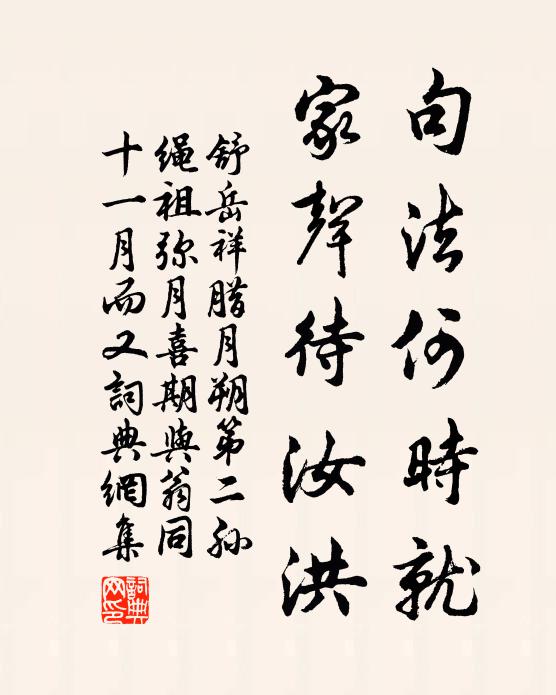 句法何時就
家聲待汝洪
舒岳祥腊月朔第二孙
绳祖弥月喜期與翁同
十一月而又詞典網集
詞典网印